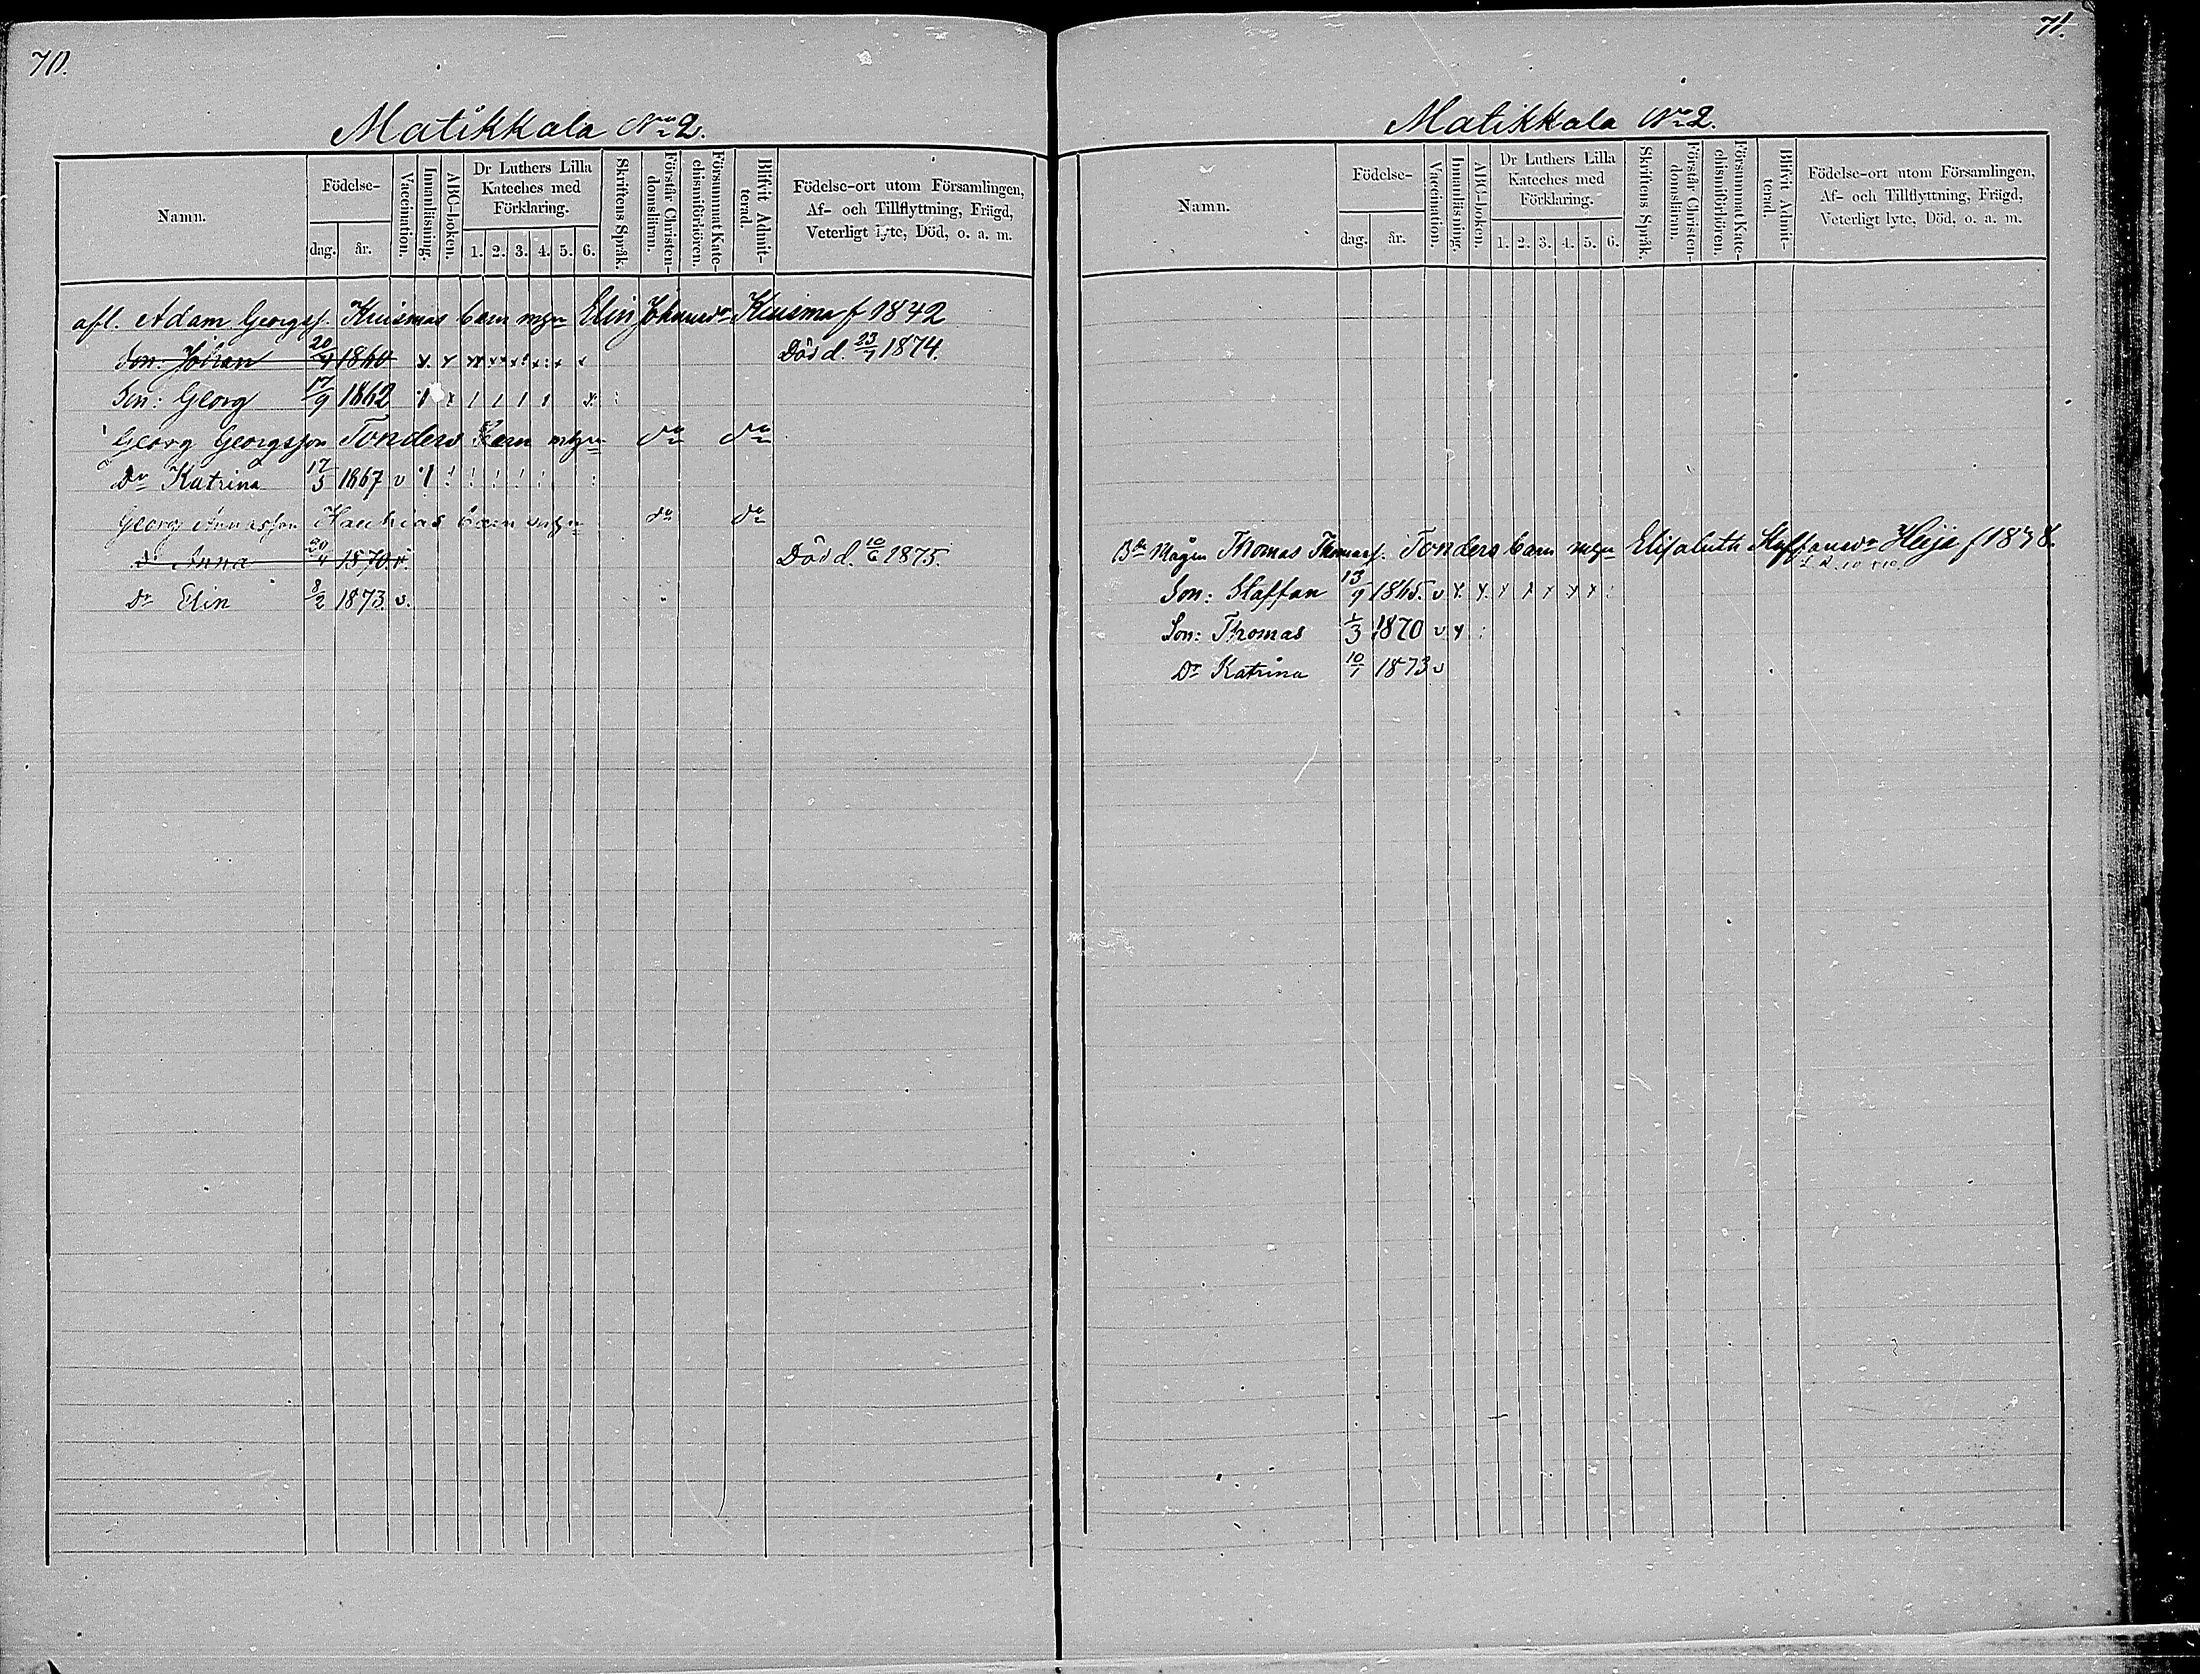 70.
Matikkala No 2.
Namn.
Födelse-
dag. år.
Vaccination.
Innanläsning.
ABC-boken.
Dr Luthers Lilla Kateches med Förklaring.
1. 2. 3. 4. 5. 6.
Skriftens Språk.
Förstår Christen-domsläran.
Försummat Kate-chismiförhören.
Blifvit Admit-terad.
Födelse-ort utom Församlingen,
Af- och Tillflyttning, Frägd,
Veterligt lyte, Död, o. a. m.
afl. Adam Georgss. Kuismas barn m Elin Johansdr Kuisma f 1842
Son: Johan 20/4 1860 x x x x x x x x Död d. 23/7 1874.
Son: Georg 17/9 1862
Georg Georgsson Tonders barn m do do
Dr Katrina 17/3 1867 v
Georg barn m do do
Dr Anna 20/4 1870 v. Död d. 10/6 1875.
Dr Elin 8/2 1873 v.
71.
Matikkala No 2.
Namn.
Födelse-
dag. år.
Vaccination.
Innanläsning.
ABC-boken.
Dr Luthers Lilla Kateches med Förklaring.
1. 2. 3. 4. 5. 6.
Skriftens Språk.
Förstår Christen-domsläran.
Försummat Kate-chismiförhören.
Blifvit Admit-terad.
Födelse-ort utom Församlingen,
Af- och Tillflyttning, Frägd,
Veterligt lyte, Död, o. a. m.
Mågen Thomas Thomass. Tonders barn m Elisabeth Staffansdr Heije f 1848.
Son: Staffan 13/9 1865. v x x x x x x x
Son: Thomas 1/3 1870 v x
Dr Katrina 10/1 1873 v